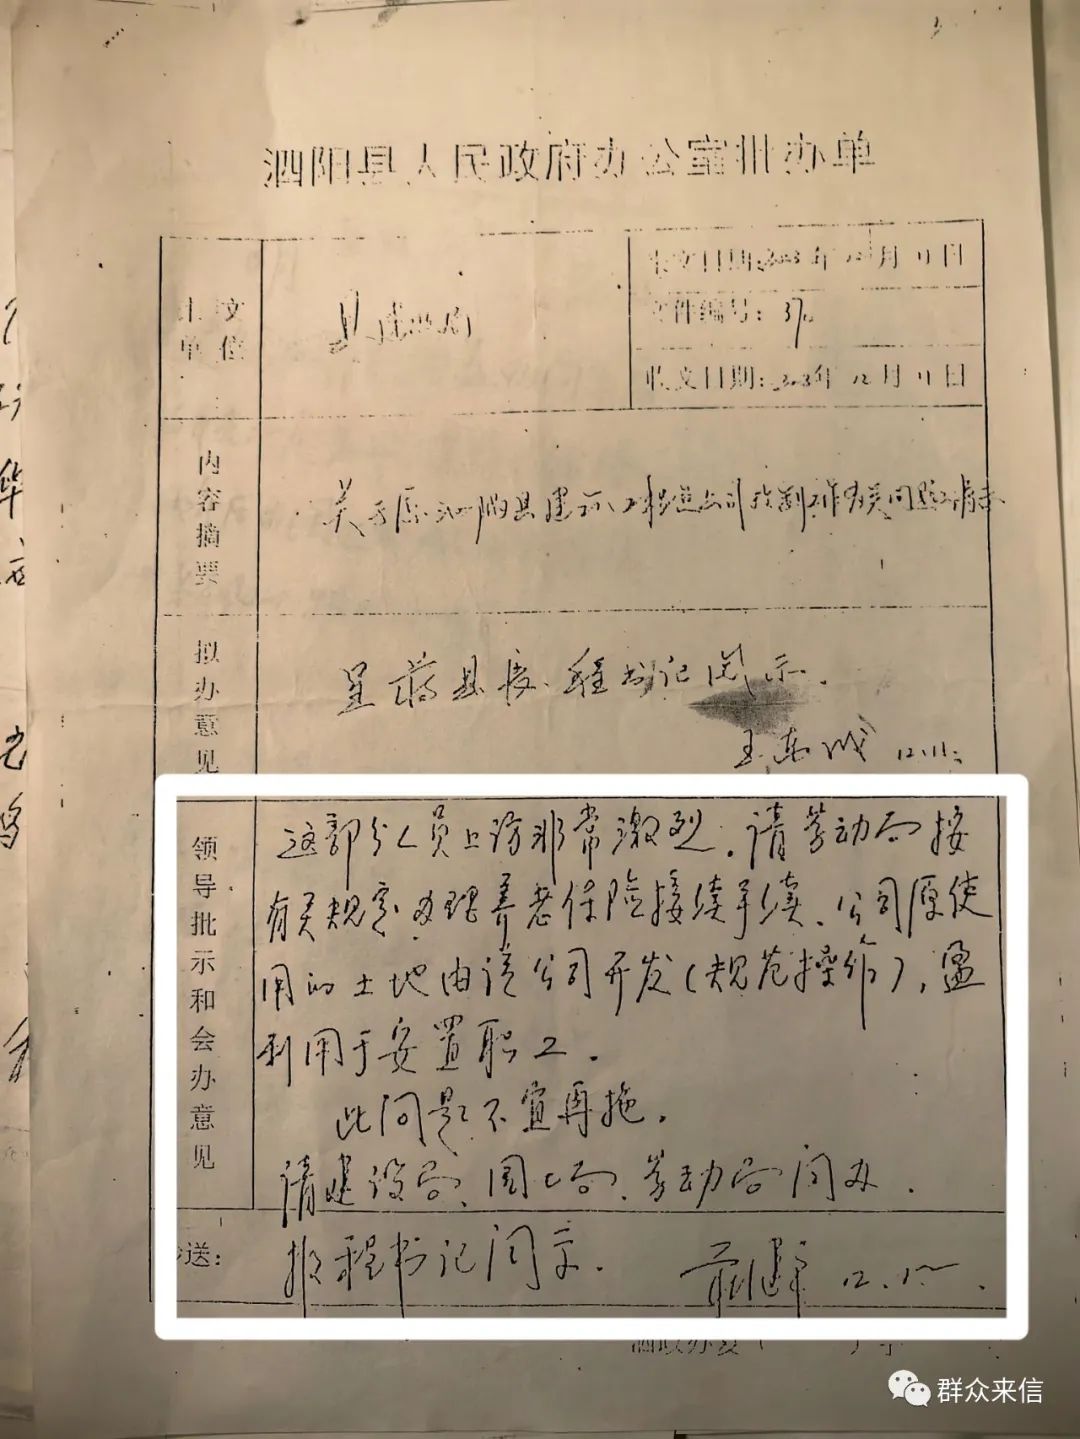 来文单位
来文日期:2003年12月11日
文件编号:370
收文日期:2003年12月11日
内容摘要
关于原泗阳县建筑工程总公司改制工作有关问题的请示
拟办意见
呈蒋县长、程书记阅示.
12.11.
领导批示和会办意见
这部分人员上访非常激烈.请劳动局按
有关规定办理养老保险接续手续、公司原使
用的土地由该公司开发(规范操作),盈
利用于安置职工.
此问题不宜再拖.
请建设局、国土局、劳动局阅办.
送:
报程书记阅示.
群众来信